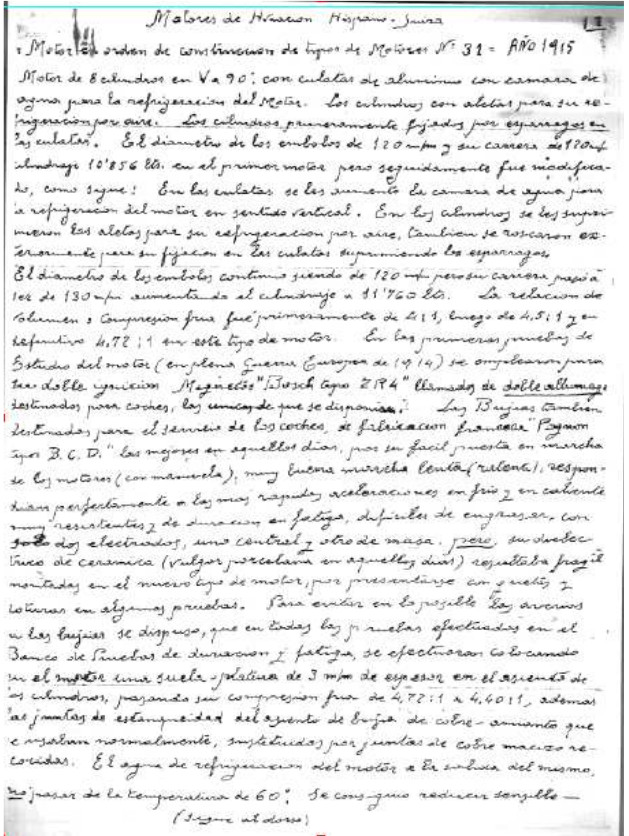 Motores de Aviacion Hispano-Suiza
Motor en orden de construccion de tipos de Motores Nº 31 = AÑO 1915
Motor de 8 cilindros en V a 90º, con culatas de aluminio con camara de
agua para la refrigeracion del Motor. Los cilindros con aletas para su re-
frigeracion por aire. Los cilindros primeramente fijados por esparragos en
las culatas. El diametro de los embolos de 120 m/m y su carrera de 120 m/m
cilindraje 10'856 Lts. en el primer motor pero seguidamente fue modifica-
do, como sigue: En las culatas se les aumento la camara de agua para
la refrigeracion del motor en sentido vertical. En los cilindros se les supri-
mieron las aletas para su refrigeracion por aire, tambien se roscaron ex-
teriormente para su fijacion en las culatas suprimiendo los esparragos.
El diametro de los embolos continuo siendo de 120 m/m pero su carrera pasó a
ser de 130 m/m aumentando el cilindraje a 11'760 Lts. La relacion de
volumen o compresion fria fué primeramente de 4:1, luego de 4,5:1 y en
definitivo 4,72:1 en este tipo de motor. En las primeras pruebas de
Estudio del motor (en plena Guerra Europea de 1914) se emplearon para
su doble ignicion Magnetos "Bosch tipo ZR4" llamados de doble allumage
destinados para coches, los unicos de que se disponian. Las Bujias tambien
destinadas para el servicio de los coches, de fabricacion francesa "Pognon
tipo B.C.D." las mejores en aquellos dias, por su facil puesta en marcha
de los motores (con manivela), muy buena marcha lenta (ralenti), respon-
dian perfectamente a las mas rapidas aceleraciones en frio y en caliente
muy resistentes y de duracion en fatiga, dificiles de engrasar, con
solo dos electrodos, uno central y otro de masa, pero, su dielec-
trico de ceramica (vulgar porcelana en aquellos dias) resultaba fragil
montadas en el nuevo tipo de motor, por presentarse con grietas y
roturas en algunas pruebas. Para evitar en lo posible las averias
a las bujias se dispuso, que en todas las pruebas efectuadas en el
Banco de Pruebas de duracion y fatiga, se efectuaran colocando
en el motor una suela-platina de 3 m/m de espesor en el asiento de
los cilindros, pasando su compresion fria de 4,72:1 a 4,40:1, ademas
las juntas de estanqueidad del asiento de bujia de cobre-amianto que
se usaban normalmente, sustituidas por juntas de cobre macizo re-
cocidas. El agua de refrigeracion del motor a la salida del mismo,
no pasar de la temperatura de 60º. Se consiguio reducir sensible-
(Sigue al dorso)